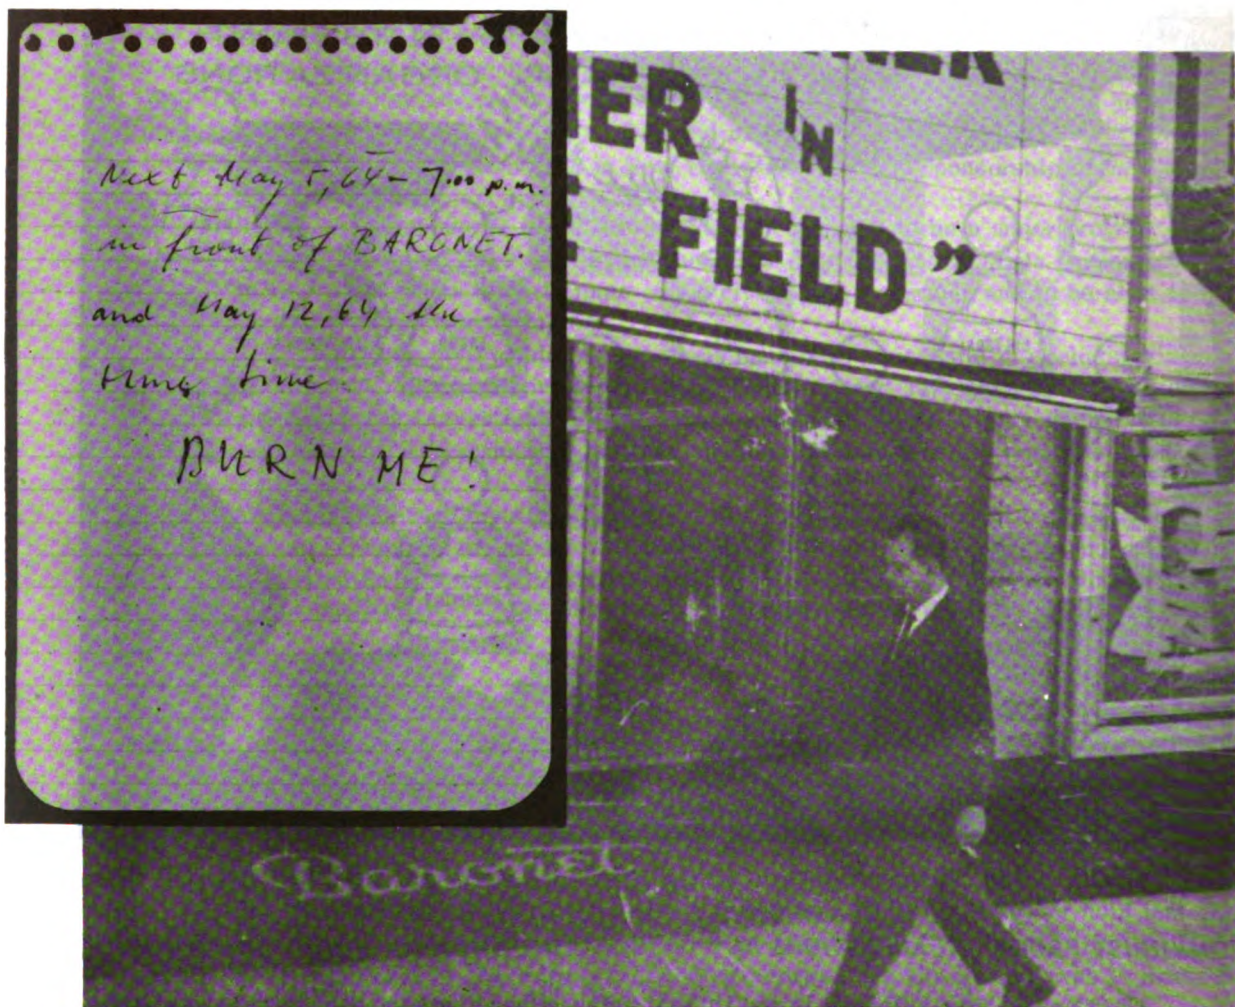 Next May 5, 64 - 7.00 p.m.
in front of BARONET.
and May 12, 64 the
time.
BURN ME!
NER
HER IN
E FIELD”
Baronet